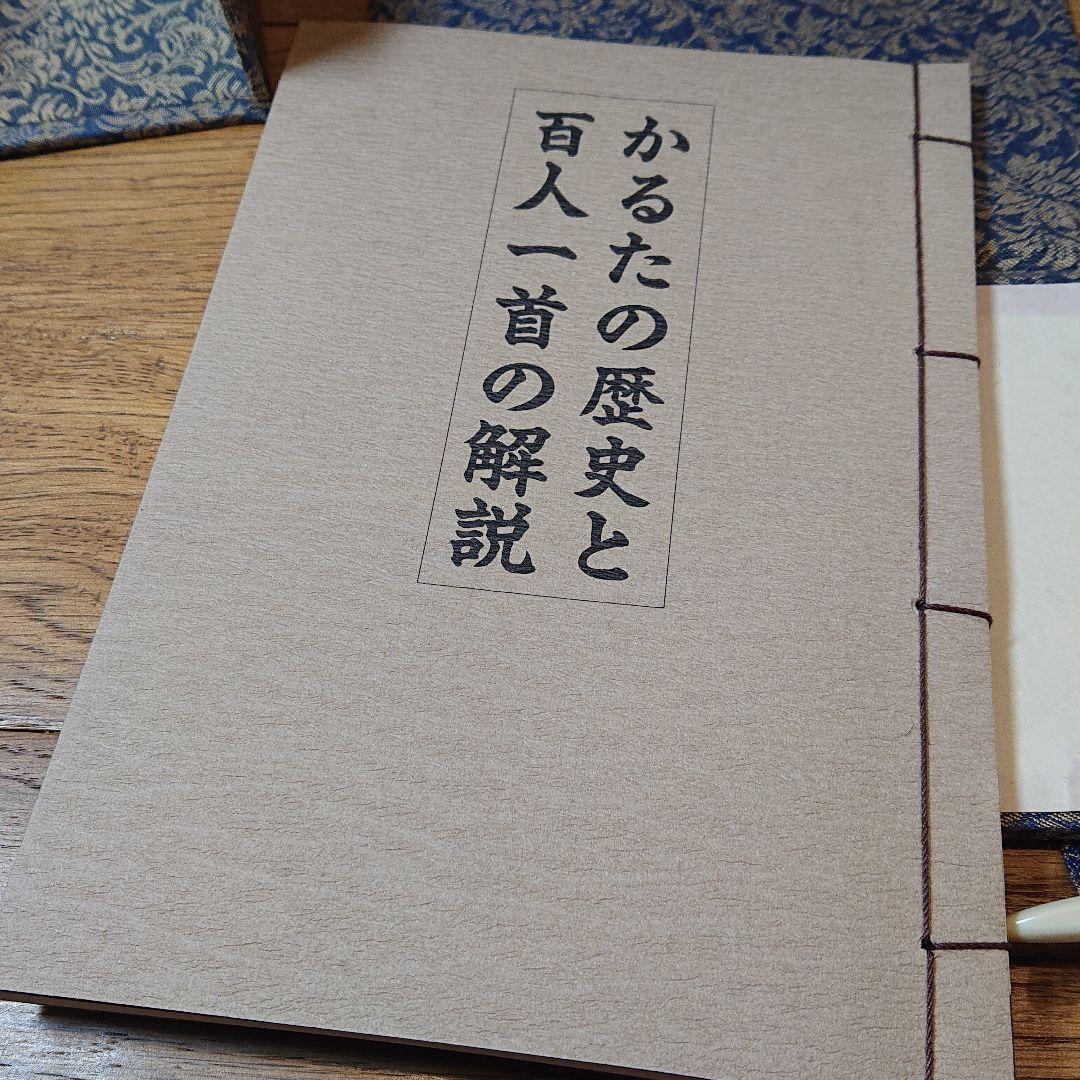 かるたの歴史と
百人一首の解説